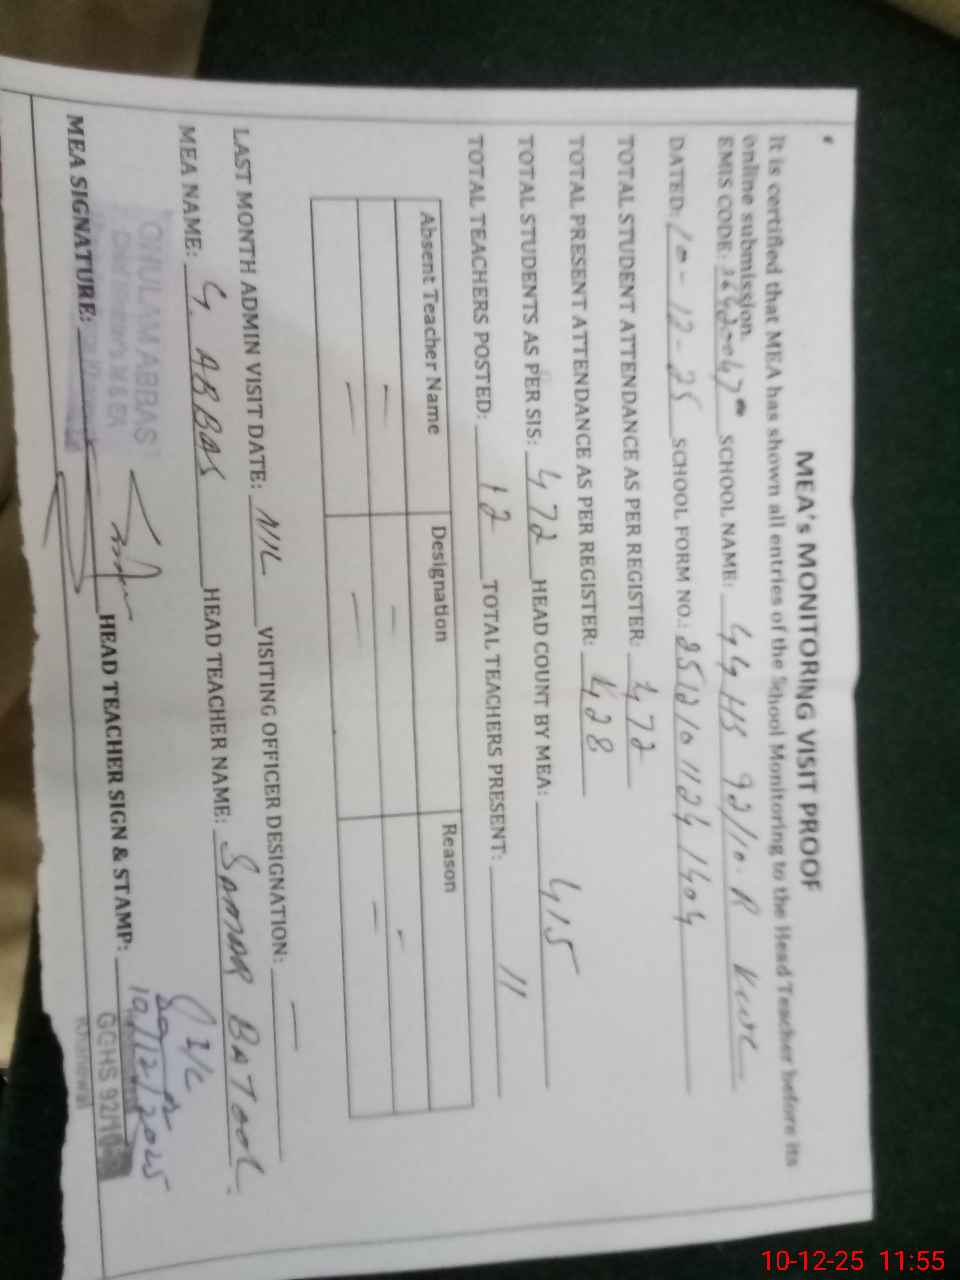 MEA's MONITORING VISIT PROOF
It is certified that MEA has shown all entries of the School Monitoring to the Head Teacher before its
online submission.
EMIS CODE: SCHOOL NAME: GGHS 92/10-R KWL
DATED: 10-12-25 SCHOOL FORM NO.: 25121011241404
TOTAL STUDENT ATTENDANCE AS PER REGISTER: 472
TOTAL PRESENT ATTENDANCE AS PER REGISTER: 428
TOTAL STUDENTS AS PER SIS: 472 HEAD COUNT BY MEA: 415
TOTAL TEACHERS POSTED: 12 TOTAL TEACHERS PRESENT: 11
Absent Teacher Name Designation Reason
— — -
— — —
LAST MONTH ADMIN VISIT DATE: NIL VISITING OFFICER DESIGNATION: —
MEA NAME: G. ABBAS HEAD TEACHER NAME: SAMAR BATOOL
GHULAM ABBAS
I/C
MEA SIGNATURE: HEAD TEACHER SIGN & STAMP: 10/12/2025
GGHS 92/10-R
Khanewal
10-12-25 11:55